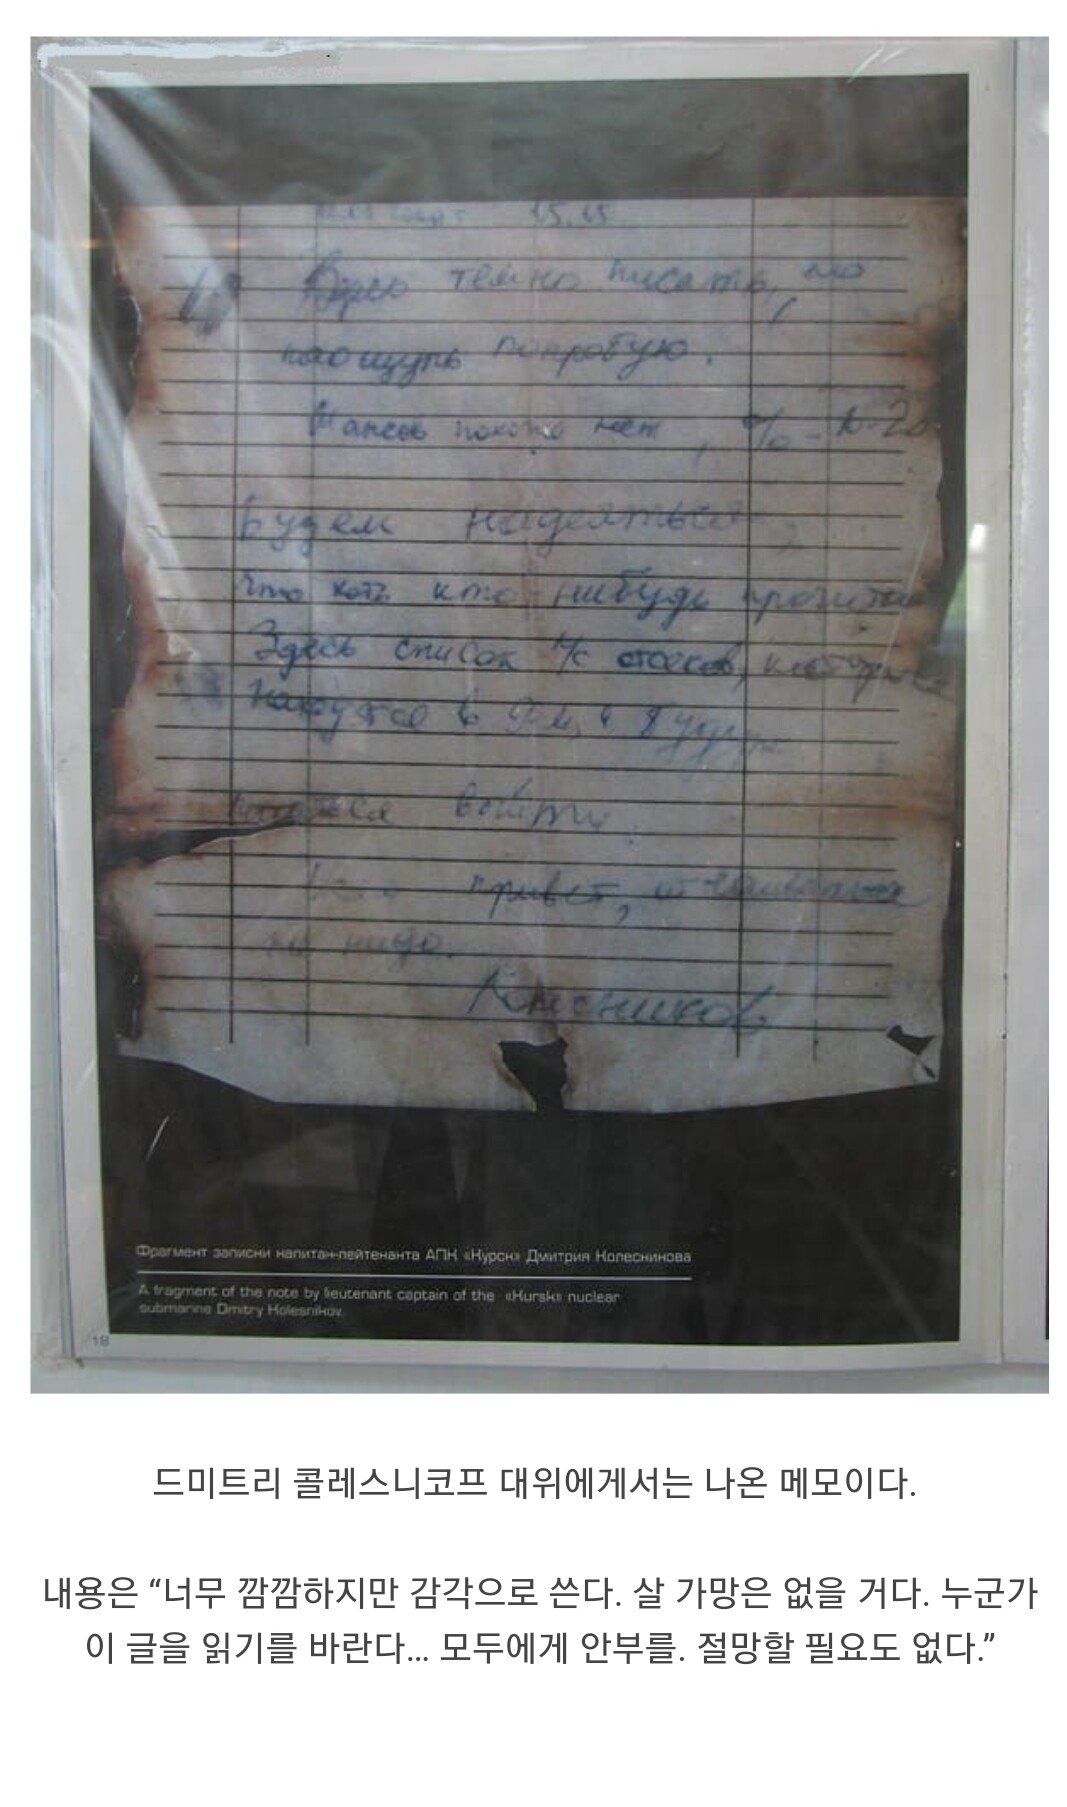 15.15
Здесь темно писать, но
наощупь попробую.
Шансов похоже нет, % - 10-20
Будем надеяться,
что хоть кто нибудь прочитает
Здесь список л/с отсеков, которые
находятся в 9-м и будут
выйти.
привет, отчаиваться
не надо.
Колесников
Фрагмент записки капитан-лейтенанта АПК «Курск» Дмитрия Колесникова
A fragment of the note by lieutenant captain of the «Kursk» nuclear
submarine Dmitry Kolesnikov.
18
드미트리 콜레스니코프 대위에게서는 나온 메모이다.
내용은 “너무 깜깜하지만 감각으로 쓴다. 살 가망은 없을 거다. 누군가
이 글을 읽기를 바란다... 모두에게 안부를. 절망할 필요도 없다.”